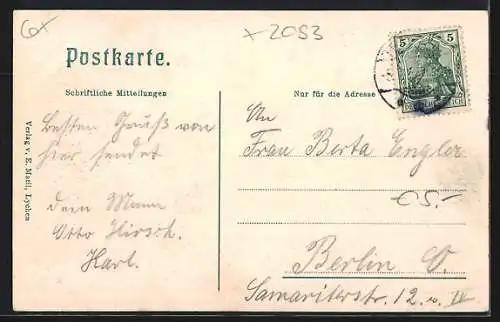 6x
x 2053
Postkarte.
5 5
Schriftliche Mitteilungen
Nur für die Adresse
An
Frau Berta Engler
Berlin O.
Samariterstr. 12 v. IV
05.-
Besten Gruß von
hier sendet
dein Mann
Otto Hirsch.
Karl.
Verlag v. E. Lychen